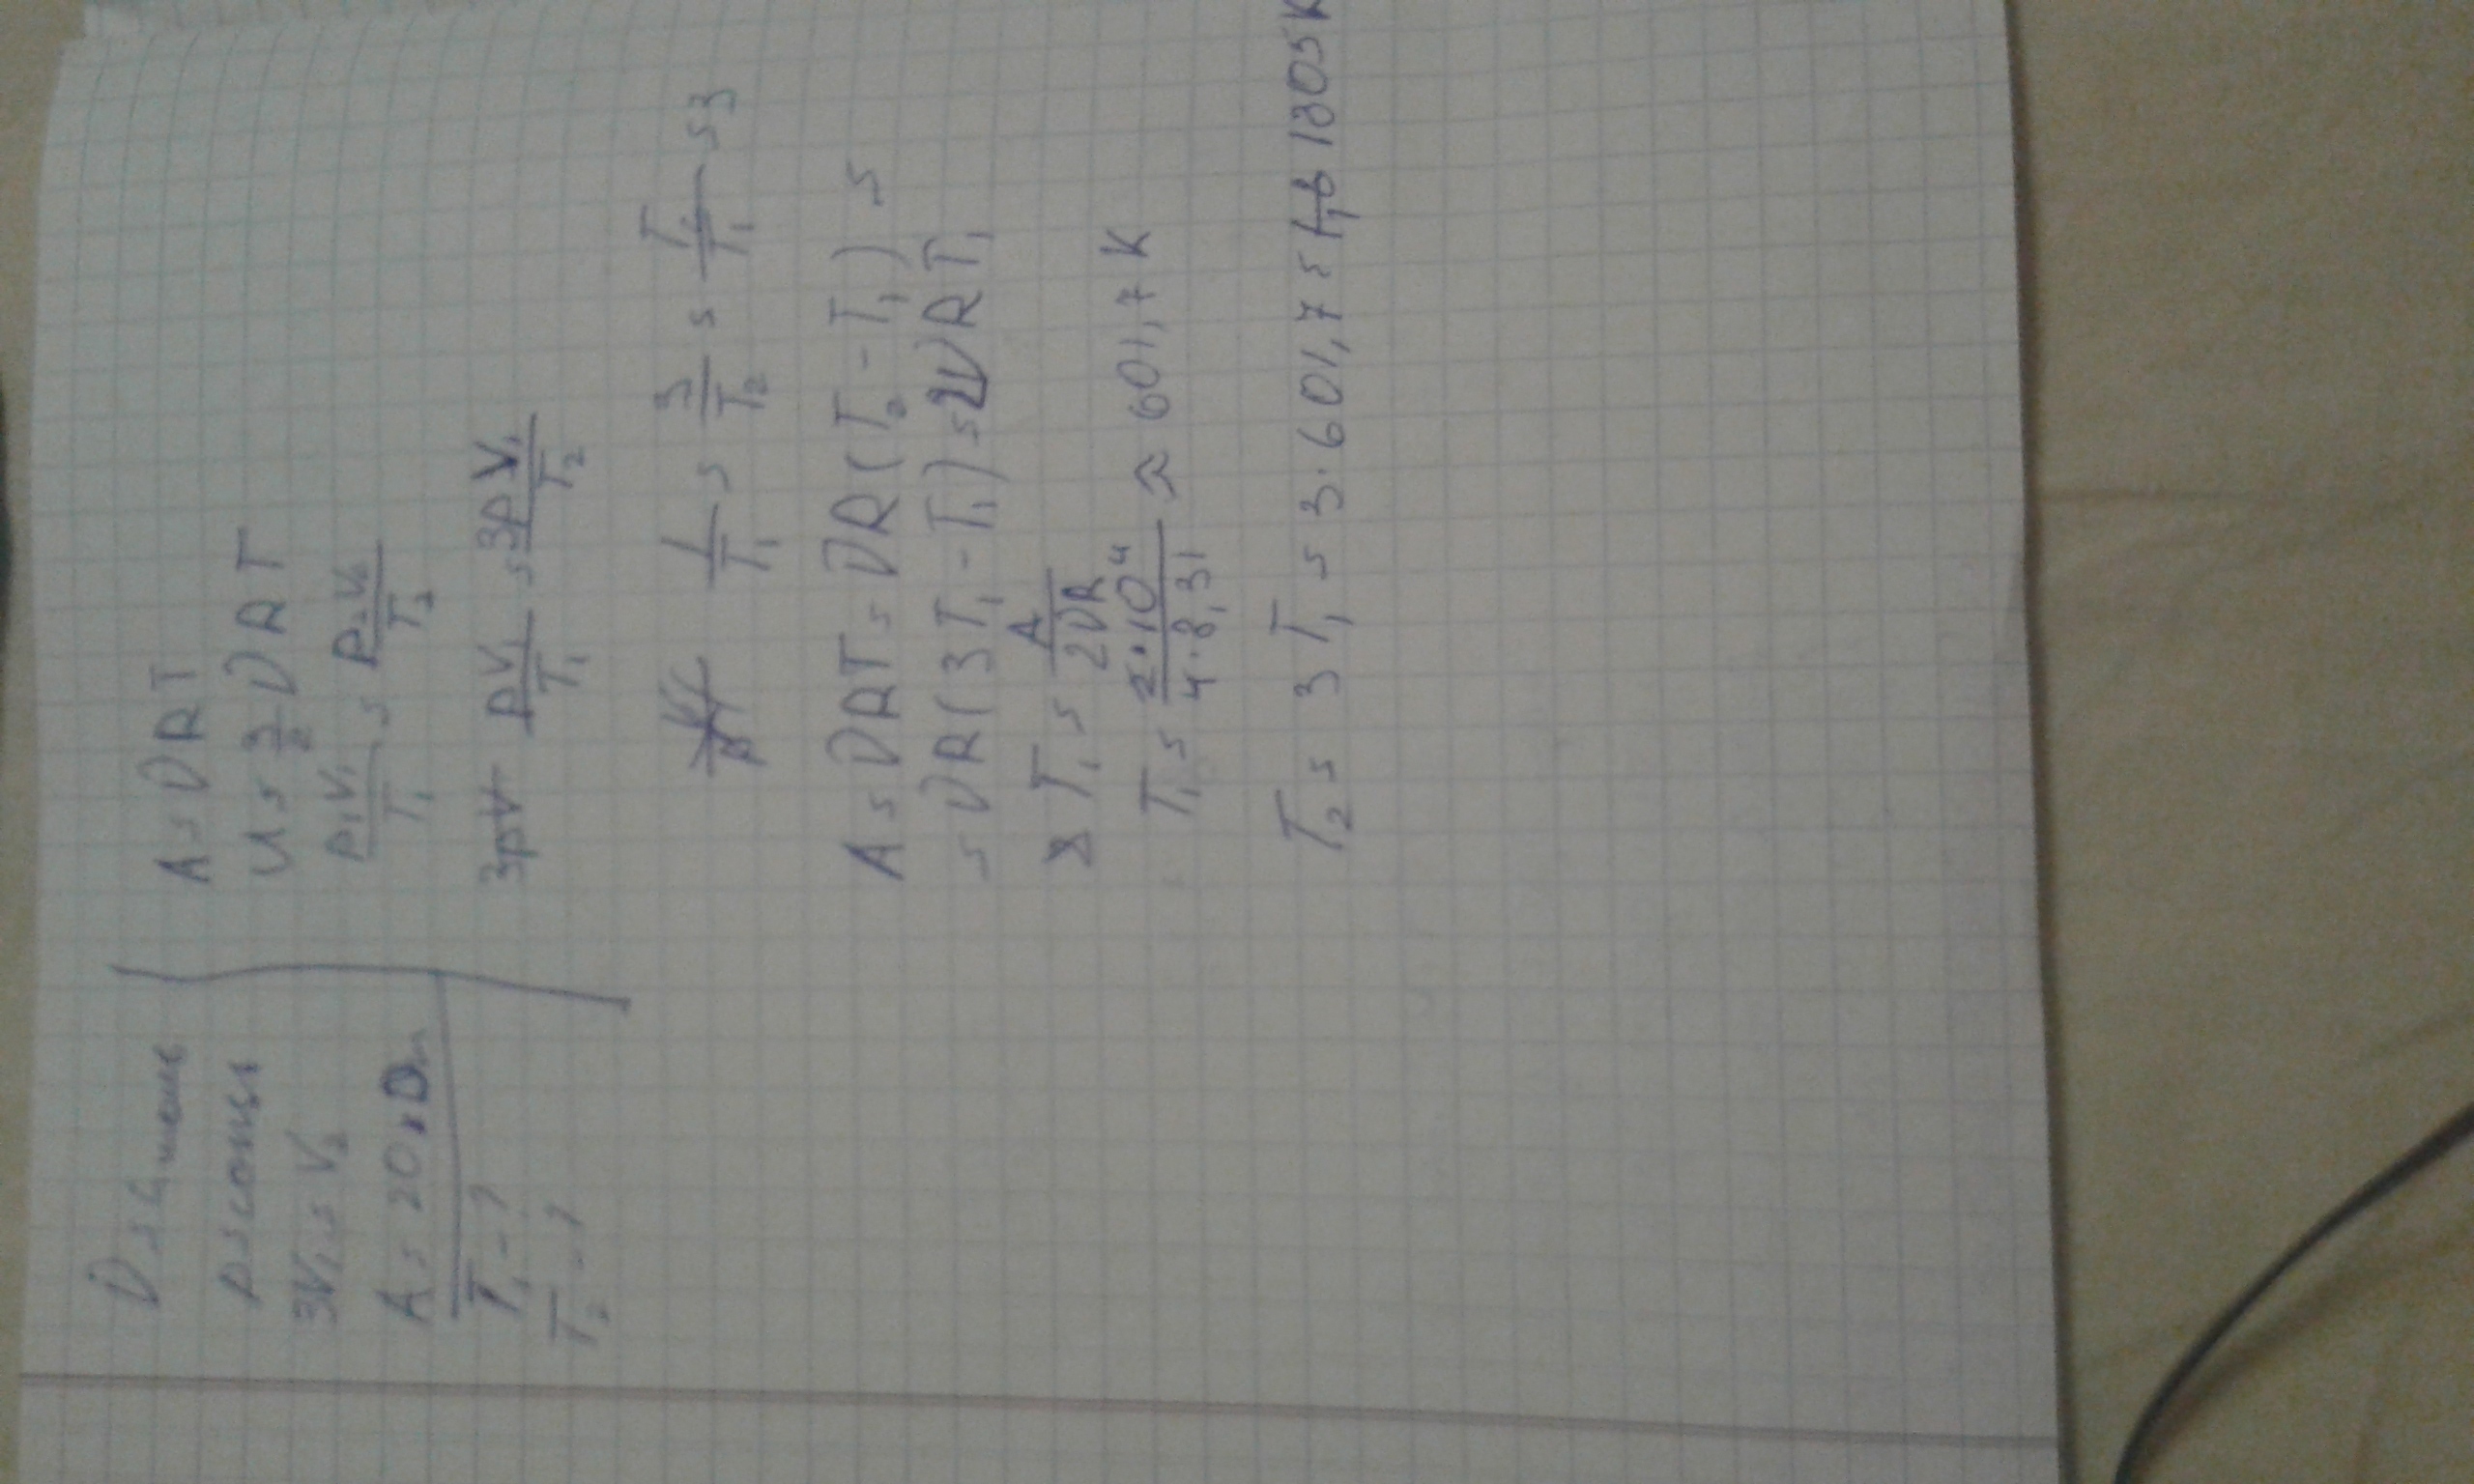 p = const
3V₁ = V₂
A = 20
T₁ - ?
T₂ - ?
A = νRT
U = 3/2 νRT
p₁V₁/T₁ = p₂V₂/T₂
3pV pV₁/T₁ = 3pV₁/T₂
1/T₁ = 3/T₂ = T/T₁ = 3
A = νRT = νR(T₂ - T₁) =
= νR(3T₁ - T₁) = 2νRT₁
T₁ = A/2νR
T₁ = 2·10⁴/4·8,31 ≈ 601,7 K
T₂ = 3T₁ = 3·601,7 = 1805 K